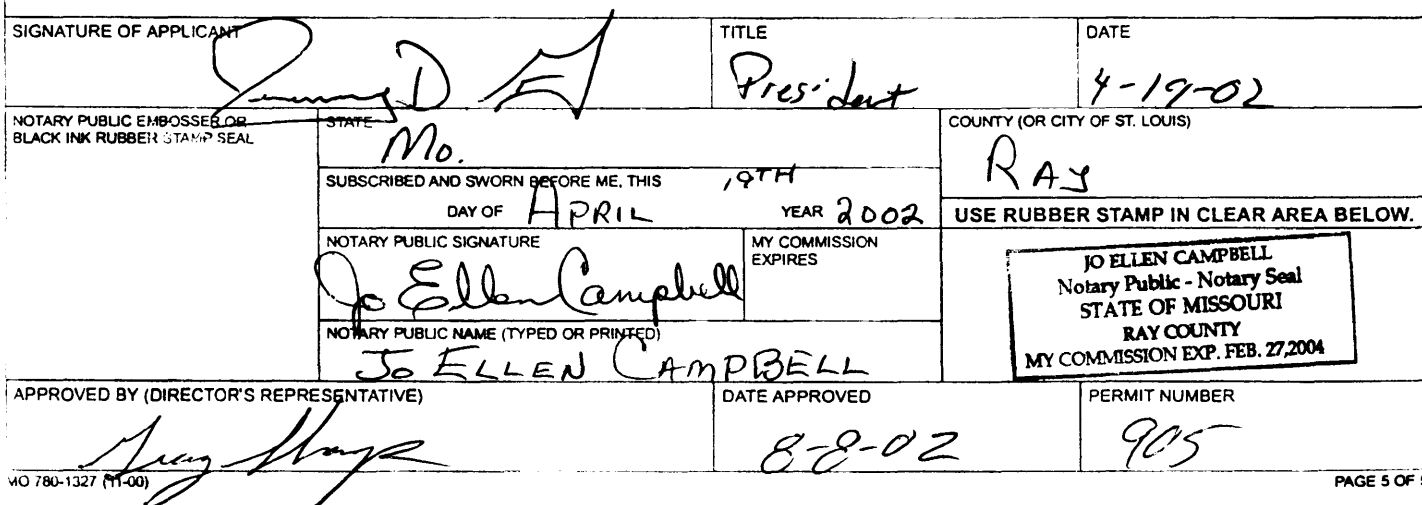 SIGNATURE OF APPLICANT
TITLE
DATE
President
4-19-02
NOTARY PUBLIC EMBOSSER OR
BLACK INK RUBBER STAMP SEAL
STATE
Mo.
COUNTY (OR CITY OF ST. LOUIS)
RAY
SUBSCRIBED AND SWORN BEFORE ME, THIS 19TH
DAY OF APRIL YEAR 2002
USE RUBBER STAMP IN CLEAR AREA BELOW.
NOTARY PUBLIC SIGNATURE
Jo Ellen Campbell
MY COMMISSION
EXPIRES
JO ELLEN CAMPBELL
Notary Public - Notary Seal
STATE OF MISSOURI
RAY COUNTY
MY COMMISSION EXP. FEB. 27,2004
NOTARY PUBLIC NAME (TYPED OR PRINTED)
JO ELLEN CAMPBELL
APPROVED BY (DIRECTOR'S REPRESENTATIVE)
DATE APPROVED
8-8-02
PERMIT NUMBER
905
MO 780-1327 (11-00)
PAGE 5 OF